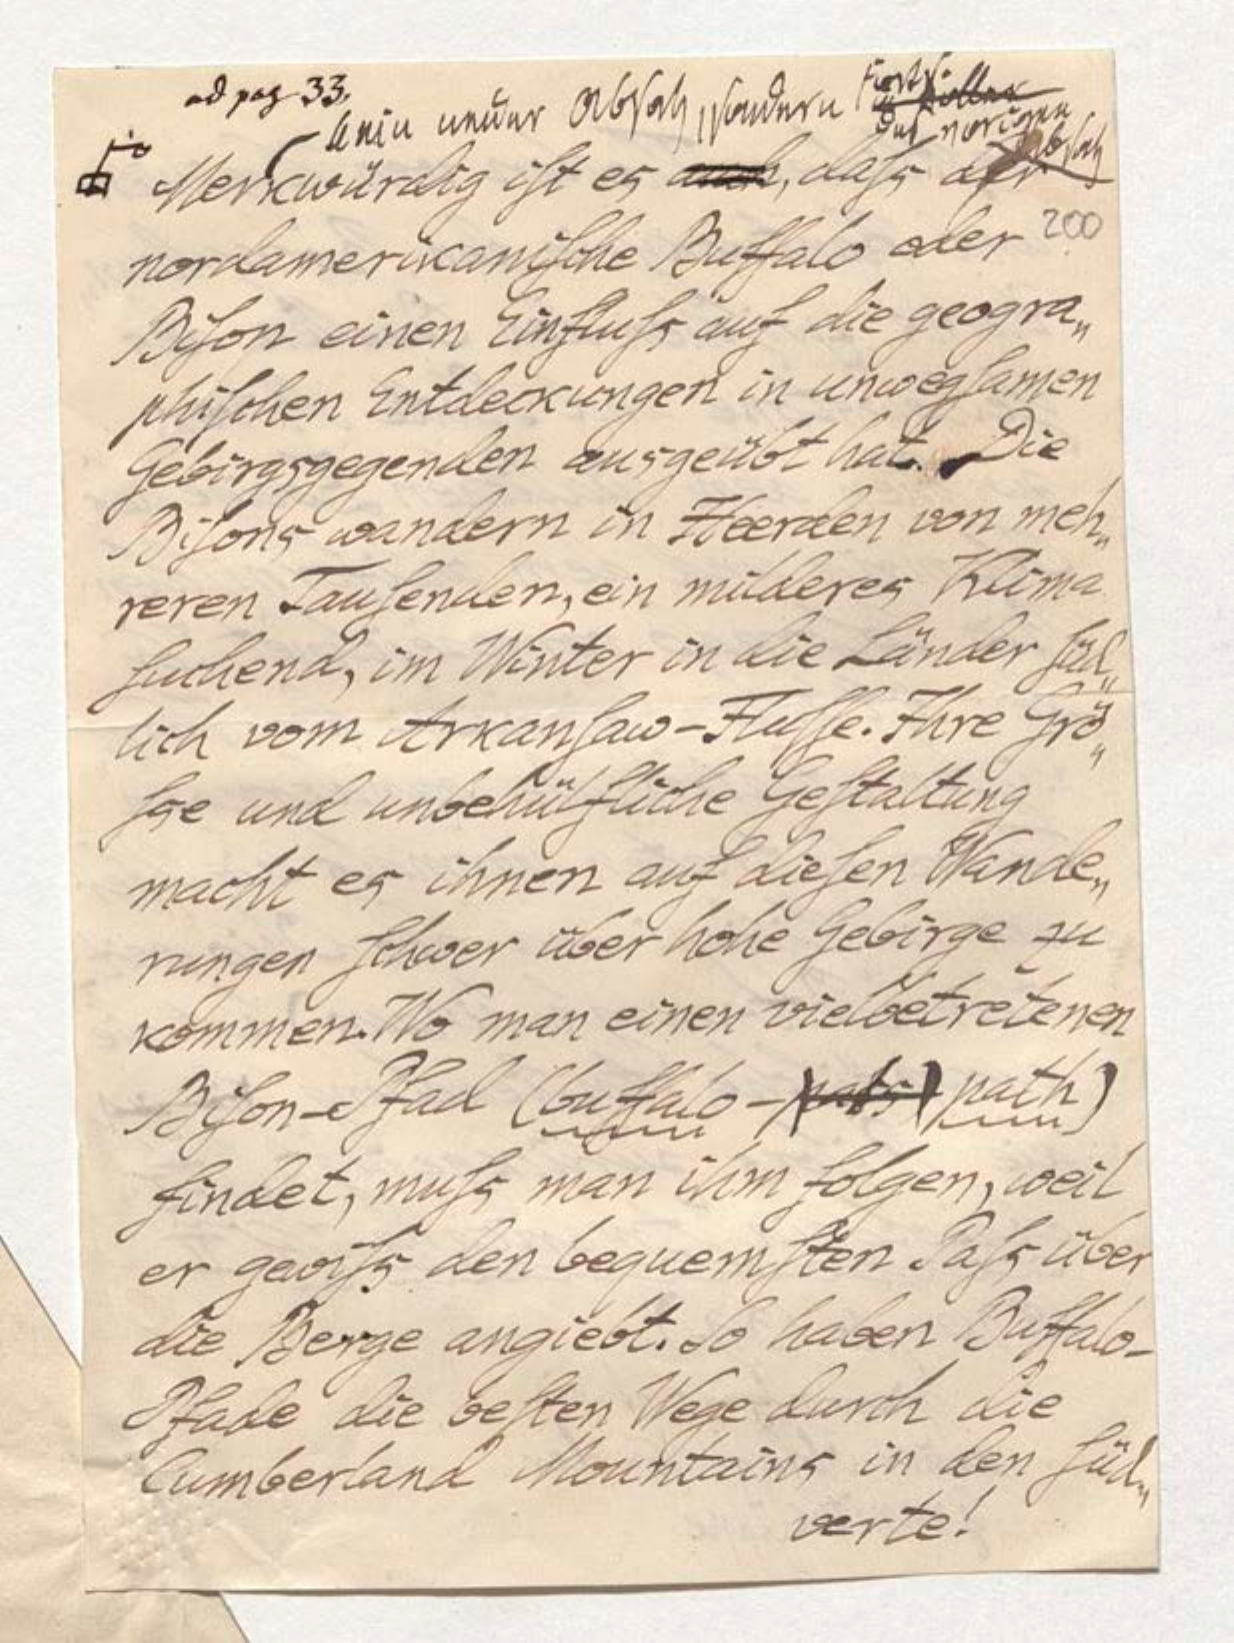 ad pag 33.
kein neuer Absatz, sondern Forts
des vorigen
Absatz
Merkwürdig ist es auch, dass der
200
nordamerikanische Buffalo oder
Bison einen Einfluss auf die geogra„
phischen Entdeckungen in unwegsamen
Gebirgsgegenden ausgeübt hat. Die
Bisons wandern in Heerden von meh„
reren Tausenden, ein milderes Klima
suchend, im Winter in die Länder süd„
lich vom Arkansaw-Flusse. Ihre Grö„
sse und unbehülfliche Gestaltung
macht es ihnen auf diesen Wande„
rungen schwer über hohe Gebirge zu
kommen. Wo man einen vielbetretenen
Bison-Pfad (buffalo-path)
findet, muss man ihm folgen, weil
er gewiss den bequemsten Pass über
die Berge angiebt. So haben Buffalo-
Pfade die besten Wege durch die
Cumberland Mountains in den süd„
verte!